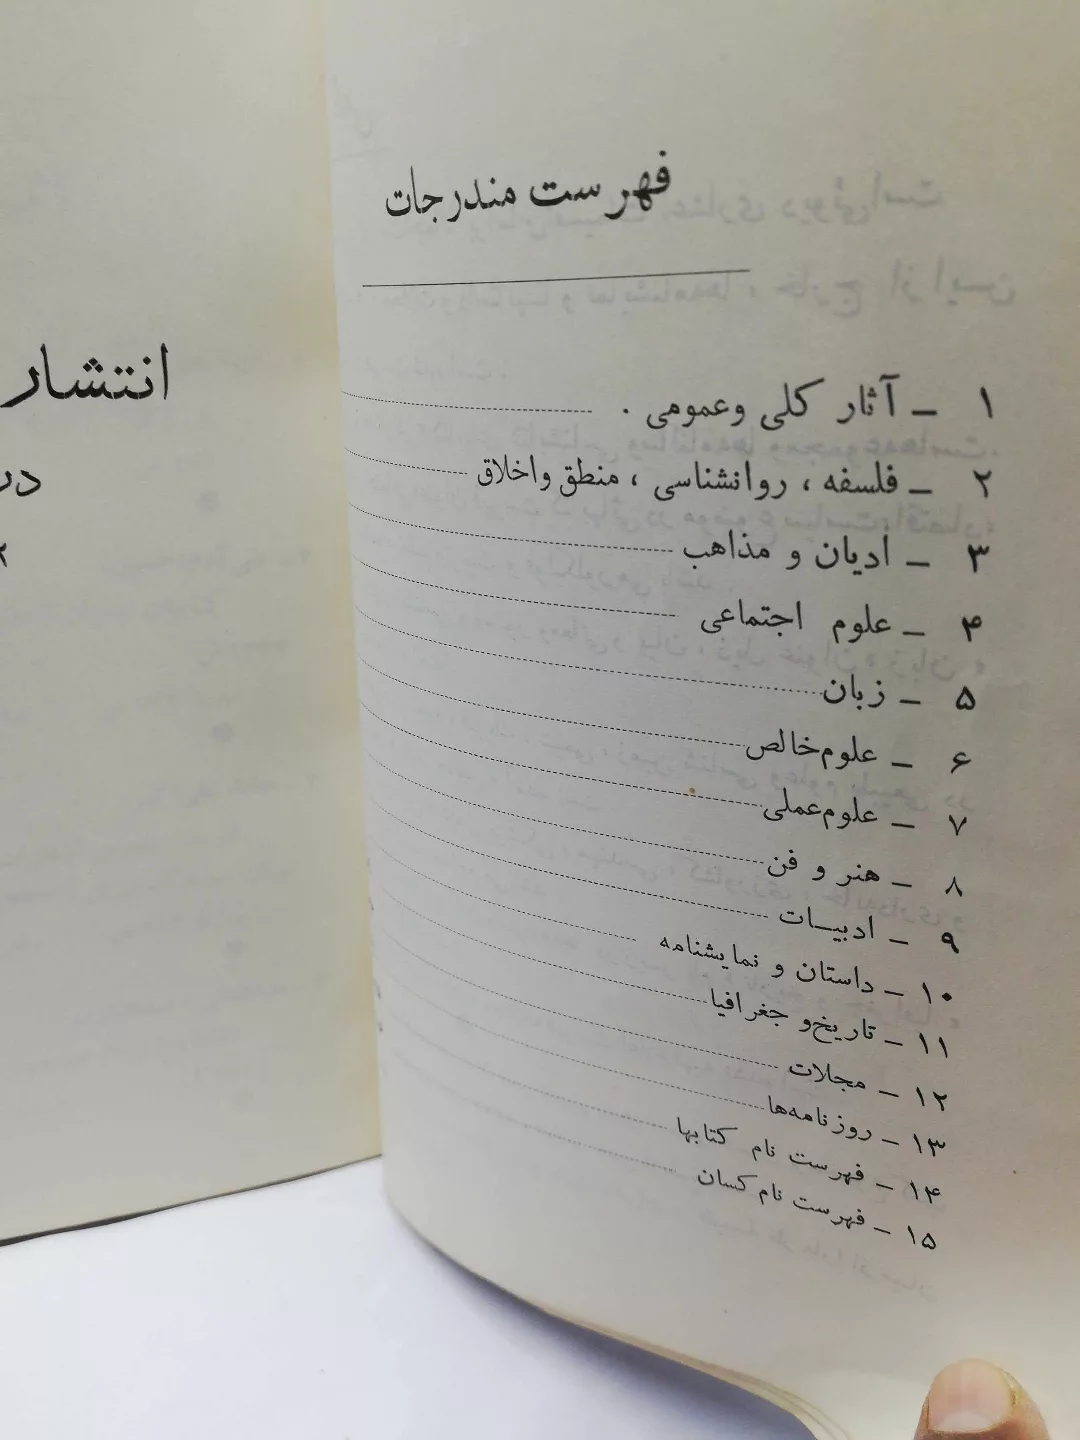 فهرست مندرجات
۱ ــ آثار کلی وعمومی .
۲ ــ فلسفه ، روانشناسی ، منطق واخلاق
۳ ــ ادیان و مذاهب
۴ ــ علوم اجتماعی
۵ ــ زبان
۶ ــ علوم‌خالص
۷ ــ علوم‌عملی
۸ ــ هنر و فن
۹ ــ ادبیــات
۱۰ ــ داستان و نمایشنامه
۱۱ ــ تاریخ‌و جغرافیا
۱۲ ــ مجلات
۱۳ ــ روزنامه‌ها
۱۴ ــ فهرست نام کتابها
۱۵ ــ فهرست نام کسان
انتشار
در
۲